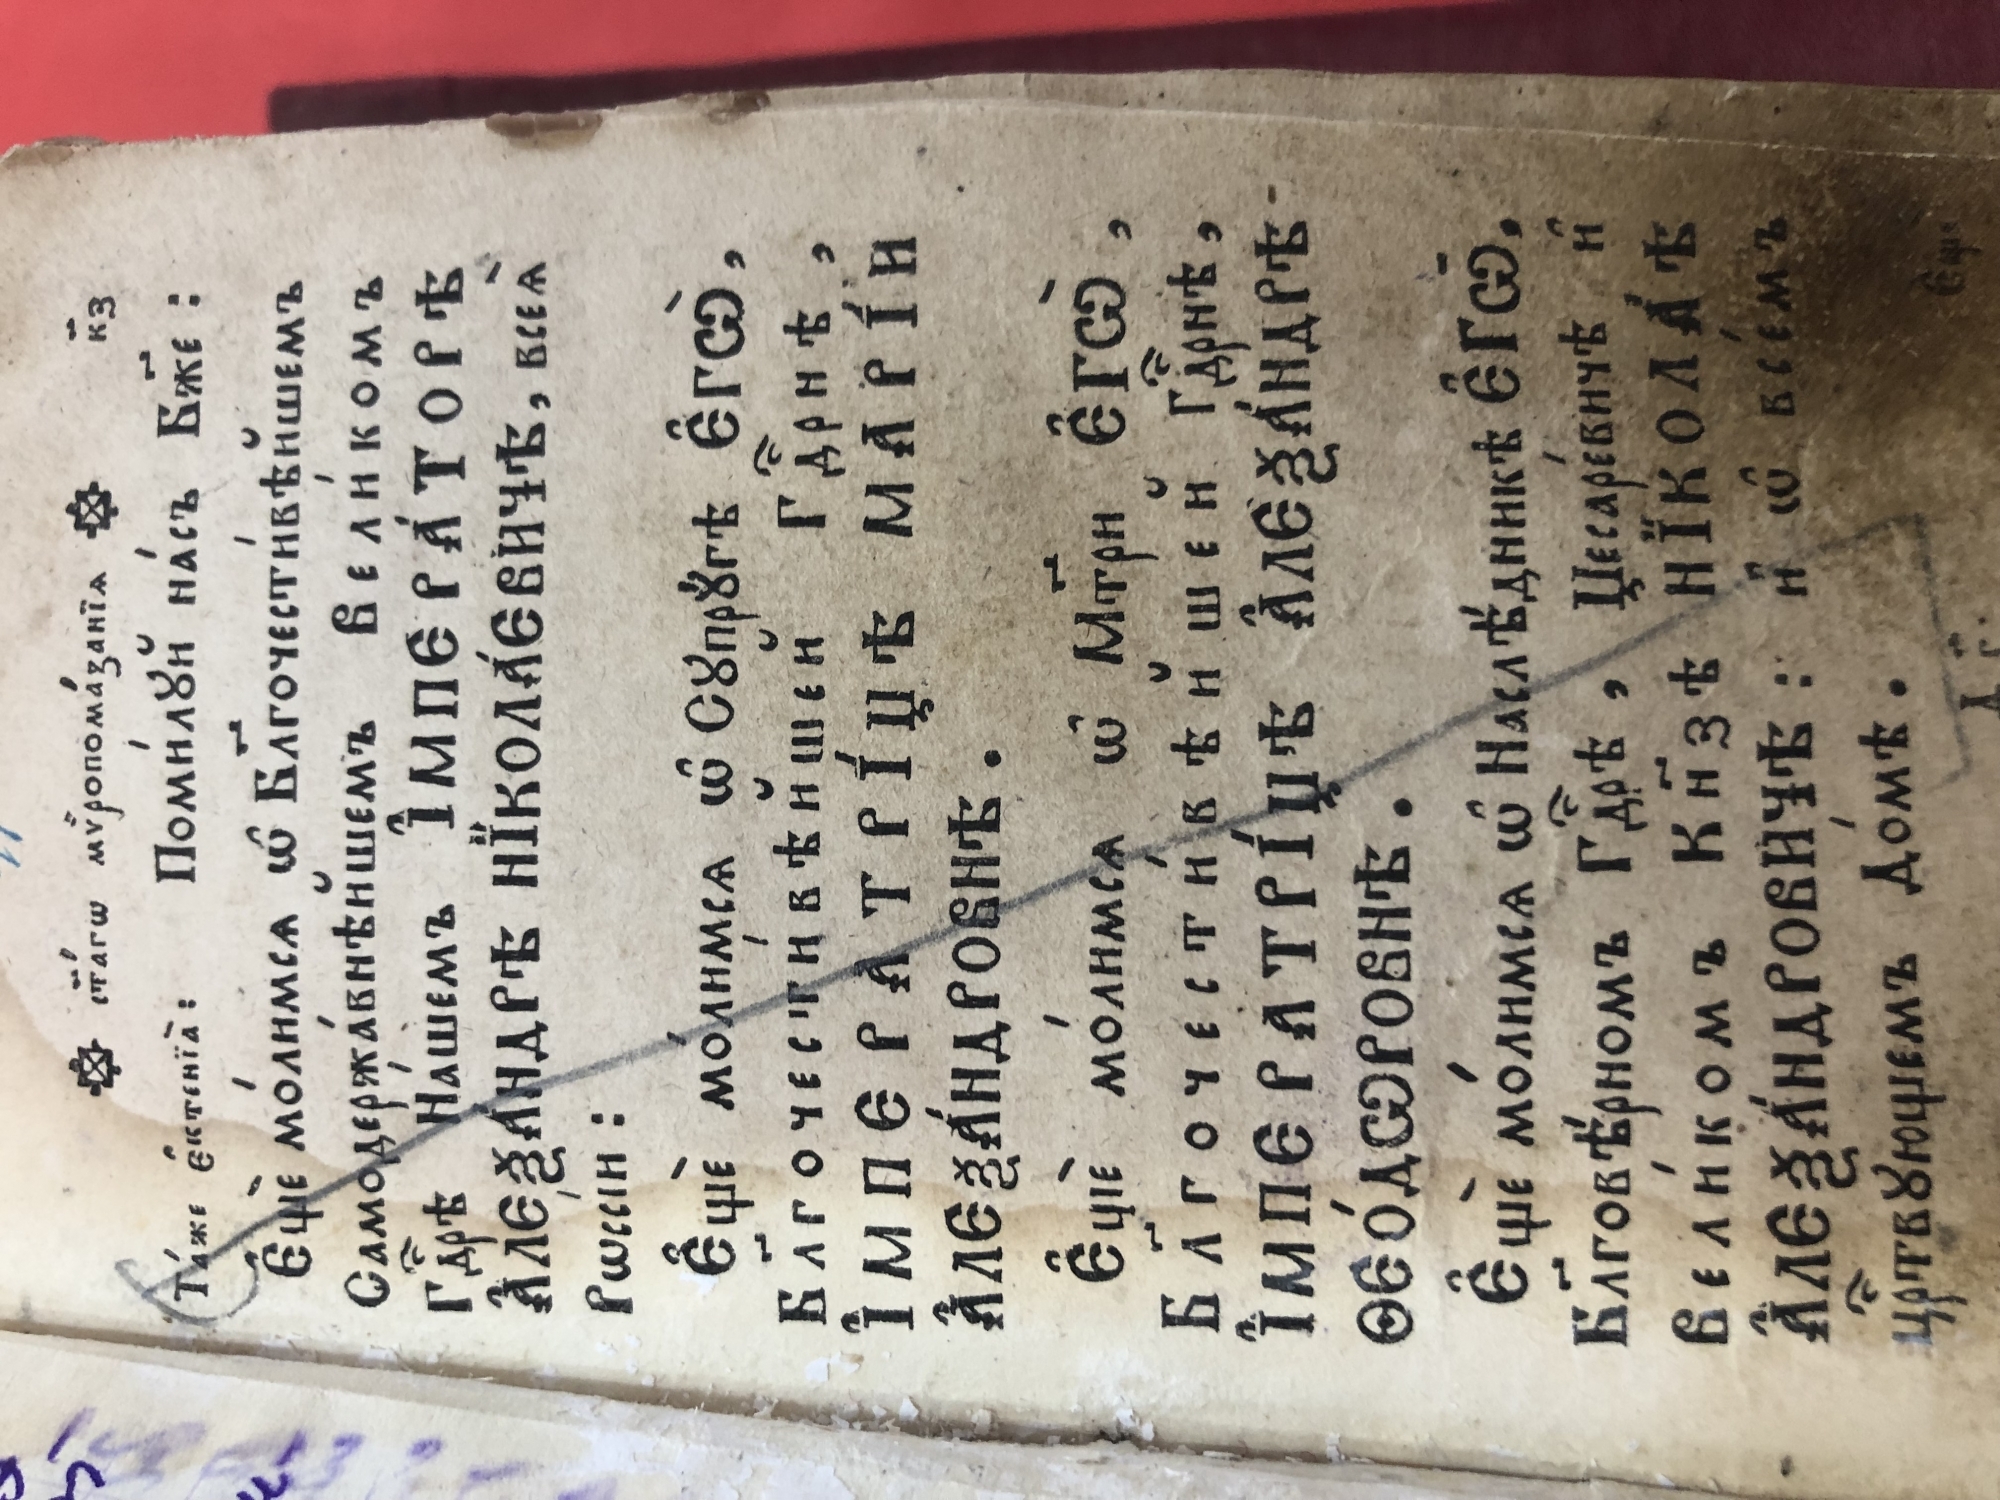 ст҃а́гѡ мѵ̈ропома́занїѧ к҃з
Та́же є҆ктенїѧ̀: Поми́лꙋй на́съ Бж҃е:
Є҆щѐ мо́лимсѧ ѡ҆ Бл҃гочести́вѣйшемъ
Самодержа́внѣйшемъ вели́комъ
Гдⷭ҇рѣ На́шемъ І҆МПЕРА́ТОРѢ
А҆ЛЕѮА́НДРѢ НЇКОЛА́ЕВИЧѢ, всеѧ̀
Рѡссі́и:
Є҆щѐ мо́лимсѧ ѡ҆ Сꙋпрꙋ́гѣ Є҆ГѠ̀,
Бл҃гочести́вѣйшей Гдⷭ҇рнѣ,
І҆МПЕРАТРІ́ЦѢ МАРІ́И
А҆ЛЕѮА́НДРОВНѢ.
Є҆щѐ мо́лимсѧ ѡ҆ Мт҃ри Є҆ГѠ̀,
Бл҃гочести́вѣйшей Гдⷭ҇рнѣ,
І҆МПЕРАТРІ́ЦѢ А҆ЛЕѮА́НДРѢ
ѲЕО́ДѠРОВНѢ.
Є҆щѐ мо́лимсѧ ѡ҆ Наслѣ́дникѣ Є҆ГѠ̀,
Бл҃говѣ́рномъ Гдⷭ҇рѣ, Цесаре́вичѣ и҆
вели́комъ Кн҃зѣ НЇКОЛА́Ѣ
А҆ЛЕѮА́НДРОВИЧѢ: и҆ ѡ҆ все́мъ
Црⷭ҇твꙋющемъ До́мѣ.
Д҃ г҃. Є҆ще